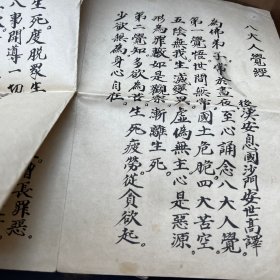 八大人覺經
後漢安息國沙門安世高譯
為佛弟子常於晝夜至心誦念八大人覺。
第一覺悟世間無常國土危脆四大苦空
五陰無我生滅變異虛偽無主心是惡源
形為罪藪如是觀察漸離生死。
第二覺知多欲為苦生死疲勞從貪欲起
少欲無為身心自在
死度脫眾生
八事開導一切
增長罪惡